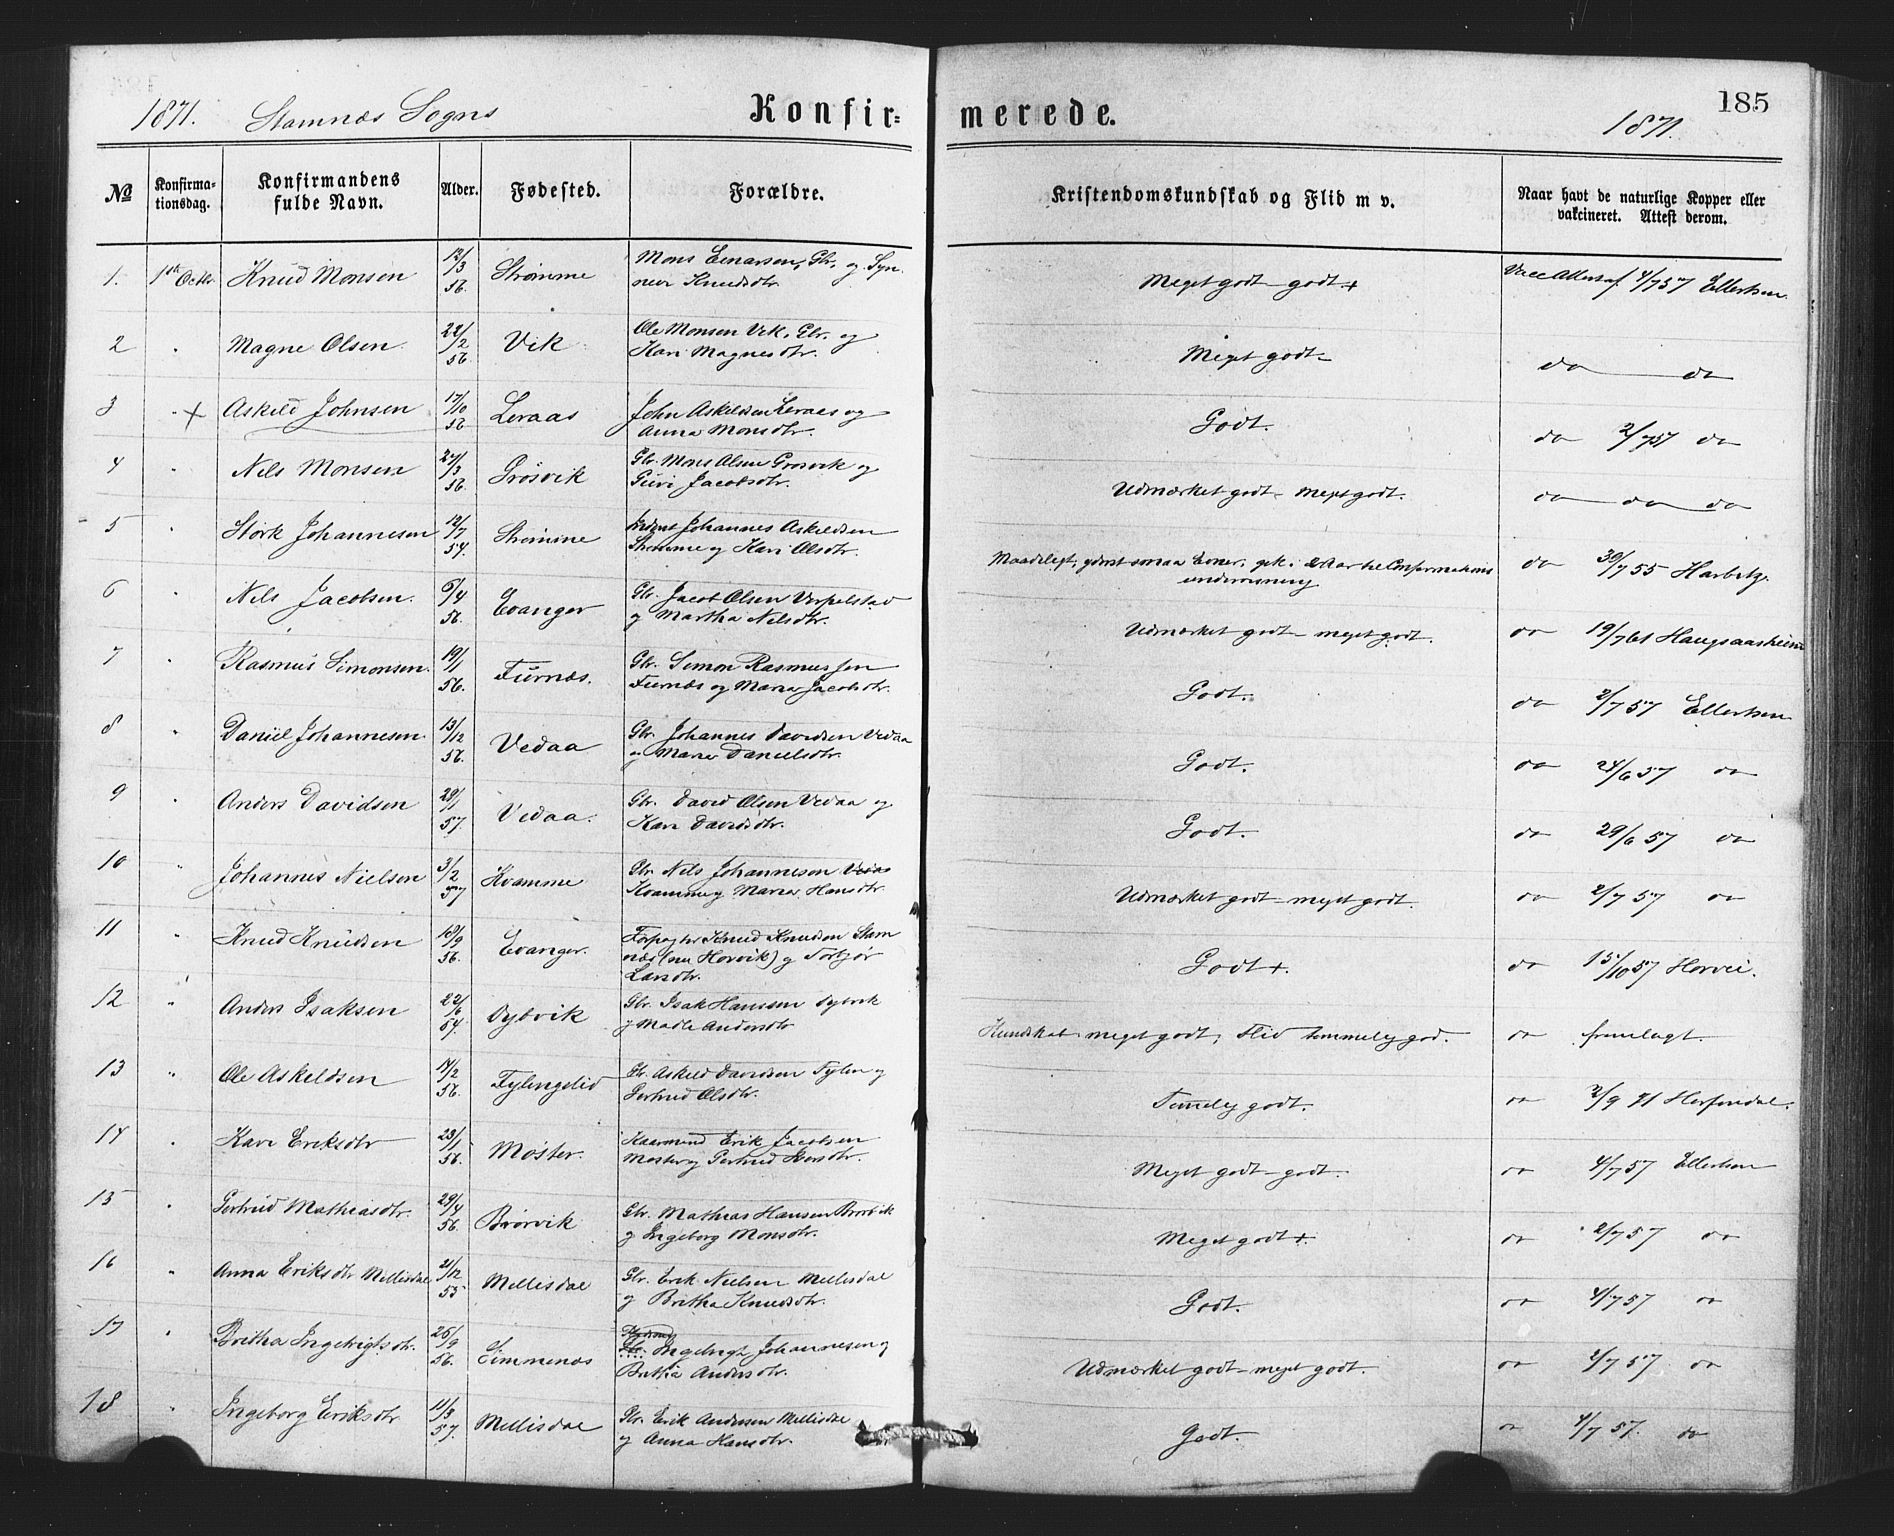 185
1871. Stamnæs Sogns Konfirmerede. 1871.
№ Konfirmationsdag. Konfirmandens fulde Navn. Alder. Fødested. Forældre. Kristendomskundskab og Flid m v. Naar havt de naturlige Kopper eller vakcineret. Attest derom.
1. 1ste Octbr Knud Monsen 12/3 56. Strømme Mons Einarsen, Gbr, og Synneve Knudsdtr Meget godt - godt + Vacc. Attest af 4/7 57 Ellertsen
2 " Magne Olsen 22/2 56. Vik Ole Monsen Vik, Gbr. og Kari Magnesdtr. Meget godt do do
3 " + Askeld Johnsen 17/10 56 Leraas John Askeldsen Leraas og Anna Monsdtr. Godt. do 2/7 57 do
4 " Nils Monsen 24/3 56. Grøsvik Gbr. Mons Olsen Grøsvik og Guri Jacobsdtr. Udmærket godt - meget godt. do do do
5 " Størk Johannesen 12/7 54. Strømme Johannes Askeldsen Strømme og Kari Olsdtr. Maadeligt, til Confirmations undervisning do 30/7 55 Harbitz
6 " Nils Jacobsen. 6/4 56. Evanger Gbr. Jacob Olsen Verpelstad og Martha Nilsdtr. Udmærket godt - meget godt. do 19/7 61 Haugsaasheim
7 " Rasmus Simonsen. 19/1 56. Furnæs. Gbr. Simon Rasmussen Furnæs og Maria Jacobsdtr. Godt. do 2/7 57 Ellertsen
8 " Daniel Johannesen 13/12 56. Vedaa Gbr. Johannes Davidsen Vedaa og Maria Danielsdtr. Godt. do 24/6 57 do
9 " Anders Davidsen 29/1 57. Vedaa. Gbr. David Olsen Vedaa og Kari Davidsdtr. Godt. do 29/6 57 do
10 " Johannes Nielsen 3/2 57 Kvamme Gbr. Nils Johannesen Kvamme og Maria Hansdtr. Udmærket godt - meget godt. do 2/7 57 do
11 " Knud Knudsen 18/9 56. Evanger. Forpagter Knud Knudsen Stamnæs (nu Horvik) og Torbjør Larsdtr. Godt +. do 15/10 57 Horvei.
12 " Anders Isaksen 22/6 54. Dybvik Gbr. Isak Hansen Dybvik og Madle Andersdtr Kundskab meget godt, Flid temmelig god. do fremlagt.
13 " Ole Askeldsen 17/2 56. Fylingslid Gbr. Askeld Davidsen Fylin og Gertrud Olsdtr. Temmelig godt. do 2/9 71 Herfindal.
14 " Kari Eriksdtr 23/1 56. Møster. Kaarmand Erik Jacobsen Møster og Gertrud Iversdtr. Meget godt - godt. do 4/7 57 Ellertsen
15 " Gertrud Mathiasdtr. 29/4 56. Brørvik Gbr. Mathias Hansen Brørvik og Ingeborg Monsdtr. Meget godt +. do 2/7 57 do
16 " Anna Eriksdtr Millisdal 21/12 55 Millisdal Gbr. Erik Nielsen Millisdal og Britha Knudsdtr. Godt. do 4/7 57 do
17 " Britha Ingebrigtsdtr. 26/9 56. Simmenæs Ingebrigt Johannesen og Britha Andersdtr. Udmærket godt - meget godt. do 2/7 57 do
18 " Ingeborg Eriksdtr 11/3 57. Millisdal Gbr. Erik Andersen Millisdal og Anna Hansdtr. Godt. do 4/7 57. do